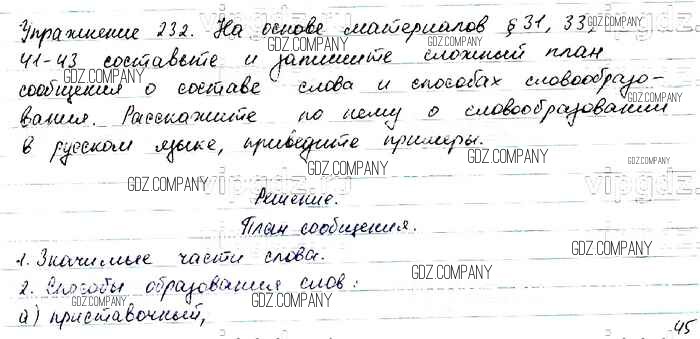 Упражнение 232. На основе материалов § 31, 33,
41-43 составьте и запишите сложный план
сообщения о составе слова и способах словообразо-
вания. Расскажите по нему о словообразовании
в русском языке, приведите примеры.
Решение.
План сообщения.
1. Значимые части слова.
2. Способы образования слов:
а) приставочный,
45